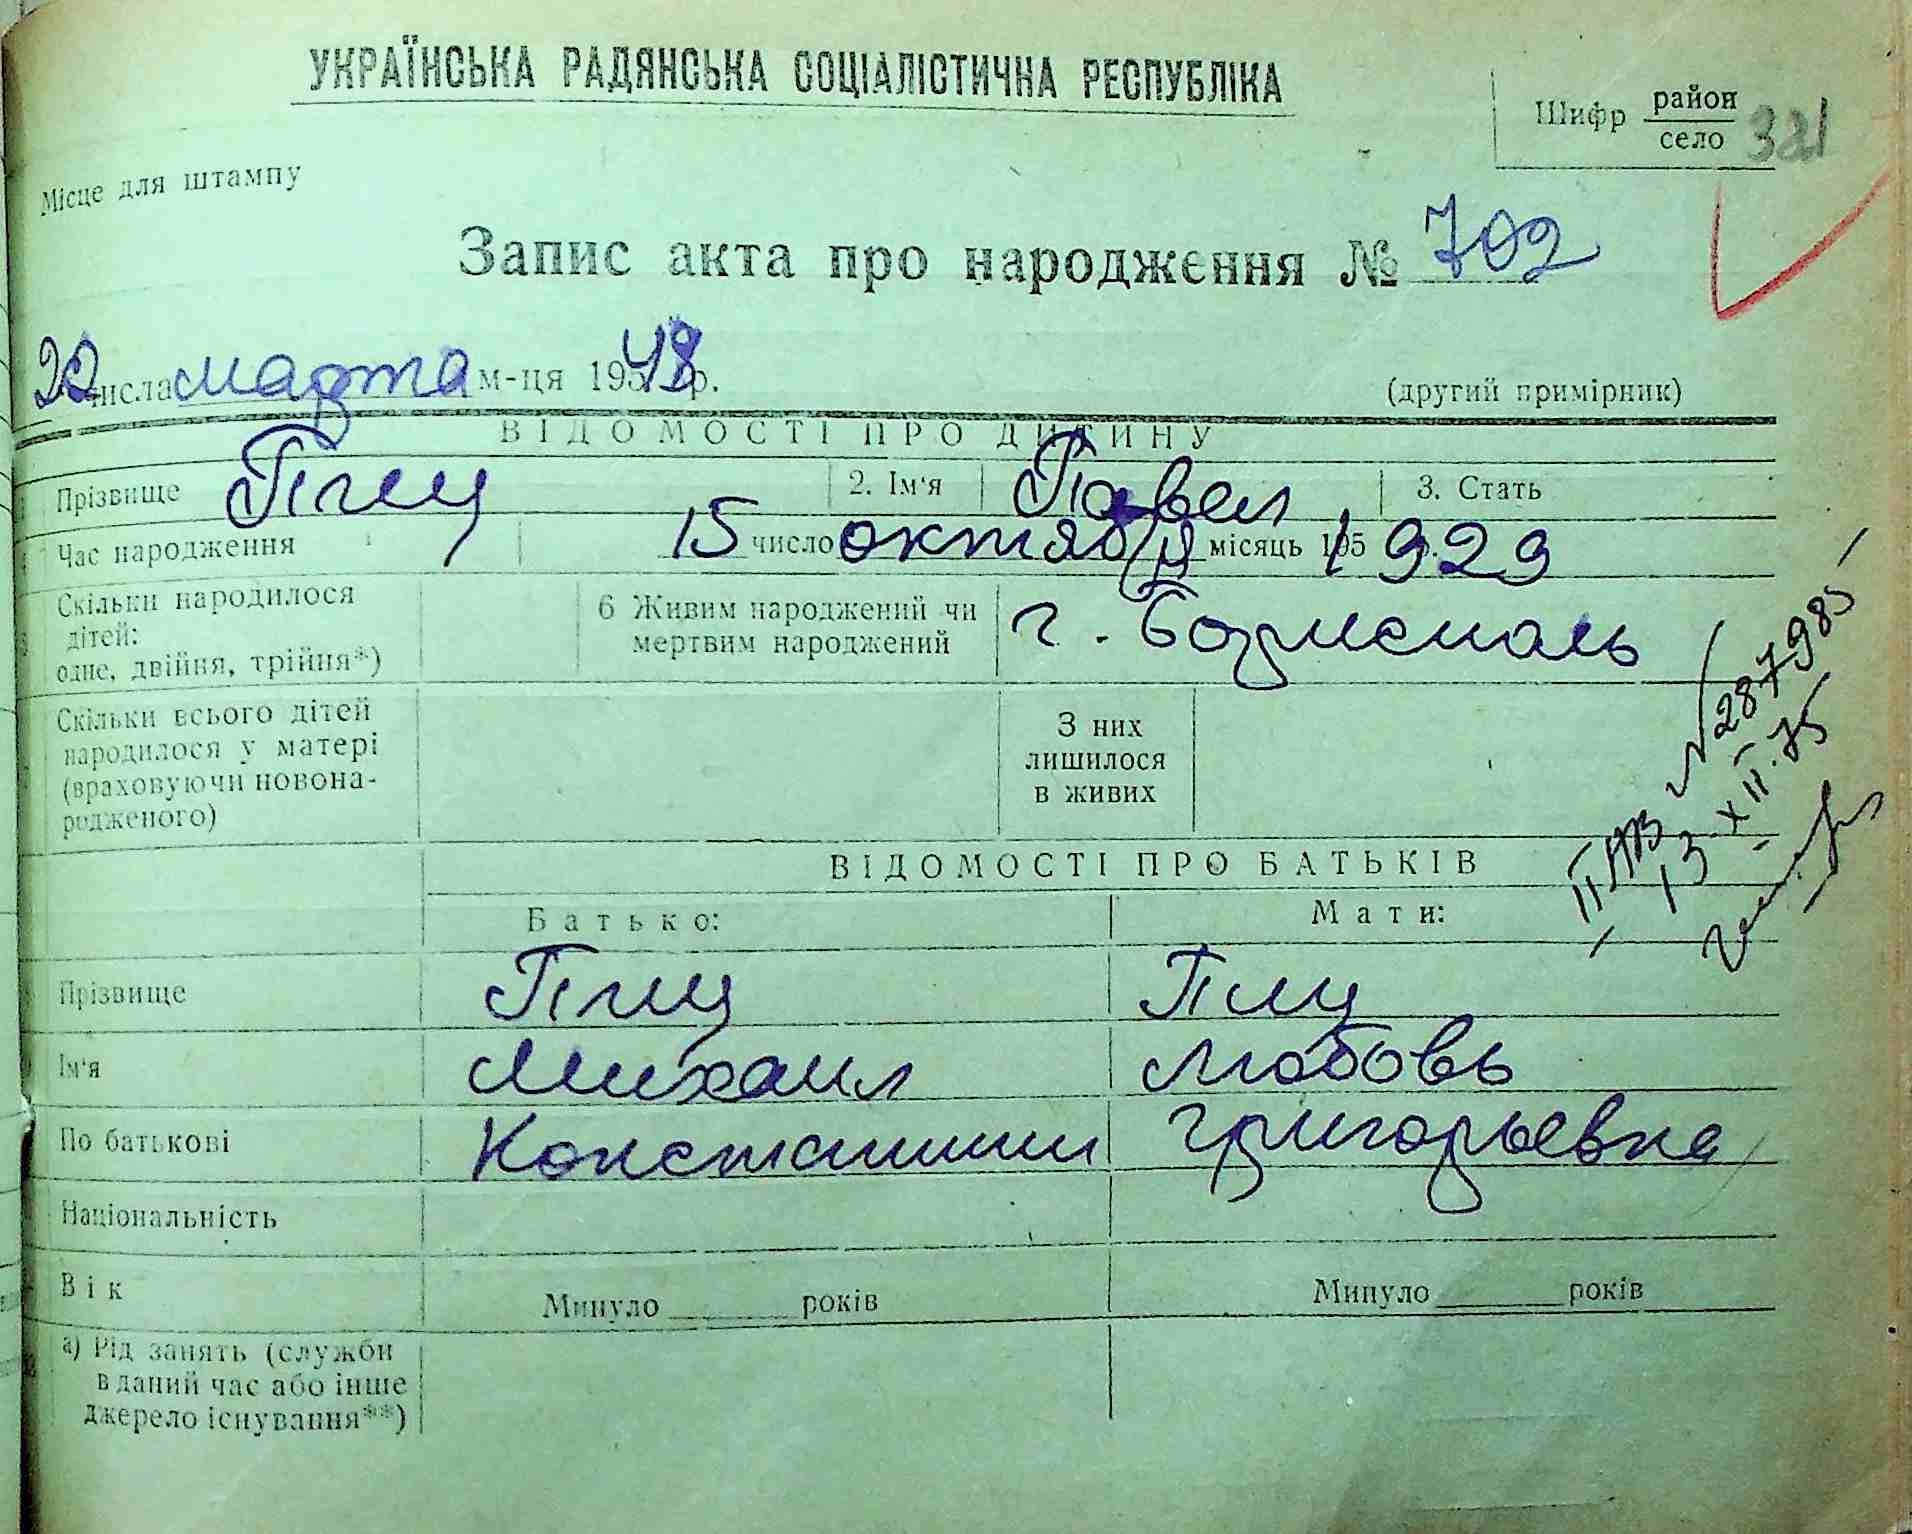 УКРАЇНСЬКА РАДЯНСЬКА СОЦІАЛІСТИЧНА РЕСПУБЛІКА
Шифр район
село 321
Місце для штампу
Запис акта про народження № 702
числа марта м-ця 195 48 р.
(другий примірник)
ВІДОМОСТІ ПРО ДИТИНУ
Прізвище 2. Ім'я Павел 3. Стать
Час народження 15 число октября місяць 195 1929
Скільки народилося
дітей:
одне, двійня, трійня*)
6 Живим народжений чи
мертвим народжений
г. Борисполь
Скільки всього дітей
народилося у матері
(враховуючи новона-
родженого)
З них
лишилося
в живих
II № 287985
13.XII.75
ВІДОМОСТІ ПРО БАТЬКІВ
Батько: Мати:
Прізвище
Ім'я Михаил Любовь
По батькові Константин Григорьевна
Національність
Вік Минуло років Минуло років
а) Рід занять (служби
в даний час або інше
джерело існування**)